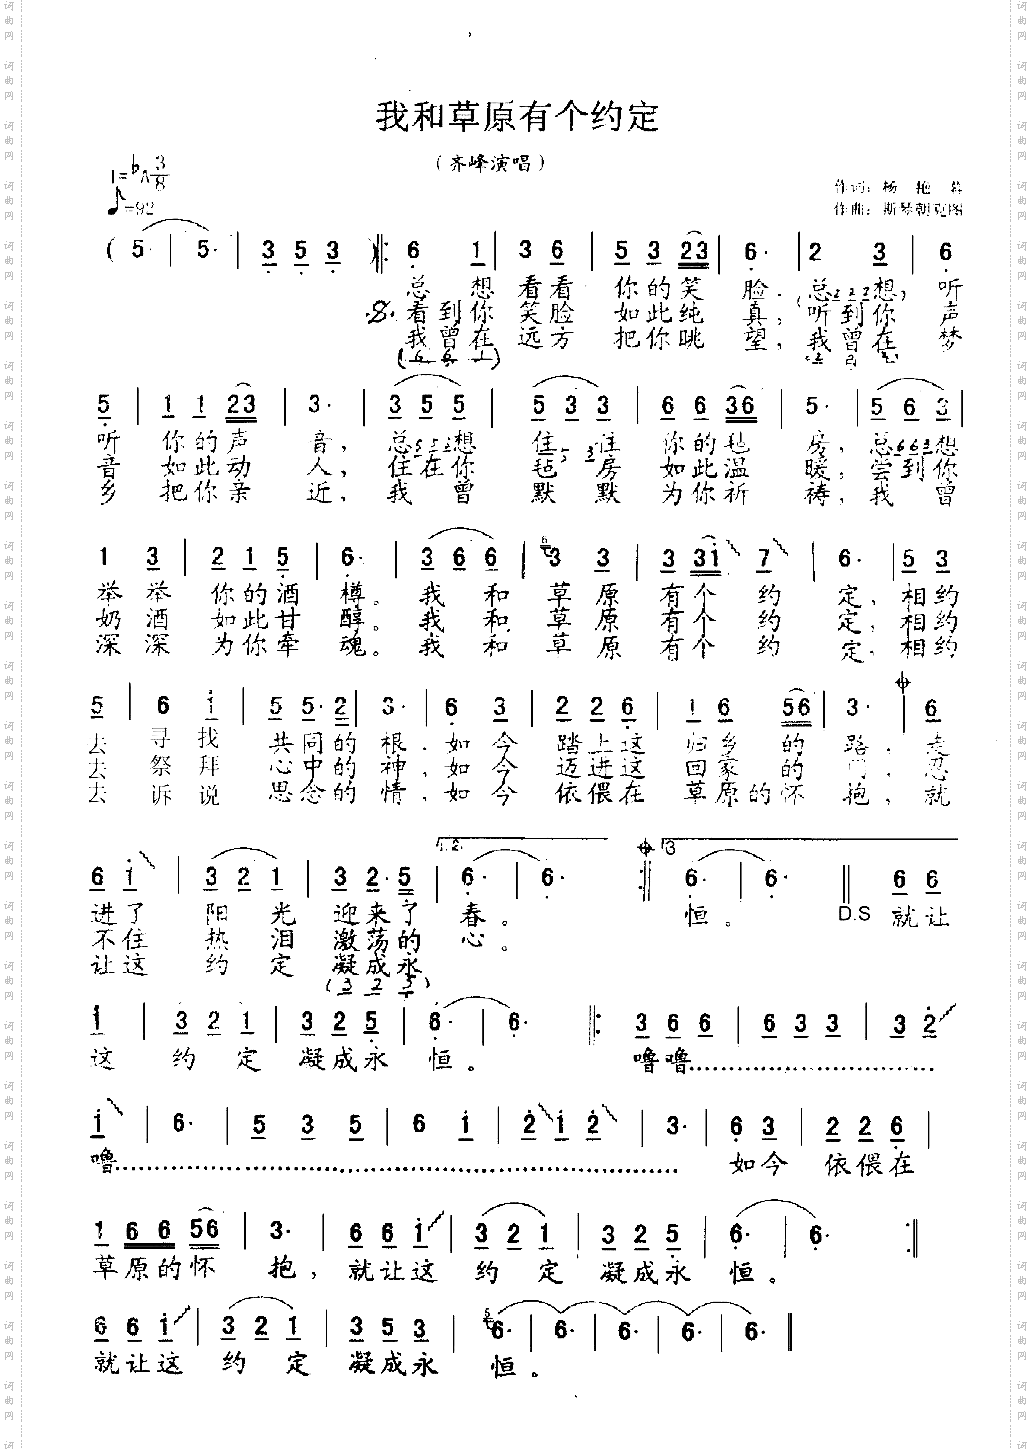 我和草原有个约定
（齐峰演唱）
1=♭A 3/8
♪=92
作词：杨艳蕃
作曲：斯琴朝克图
( 5· | 5· | 3 5 3 ‖: 6 1 | 3 6 | 5 3 23 | 6· | 2 3 | 6
总想看看你的笑脸.总想听
看到你笑脸如此纯真,听到你声
我曾在远方把你眺望,我曾在梦
5 | 1 1 23 | 3· | 3 5 5 | 5 3 3 | 6 6 36 | 5· | 5 6 3 |
听你的声音,总想住住你的毡房,总想
音如此动人,住在你毡房如此温暖;尝到你
乡把你亲近,我曾默默为你祈祷,我曾
1 3 | 2 1 5 | 6· | 3 6 6 | 3 3 | 3 3i | 7 | 6· | 5 3
举举你的酒樽。我和草原有个约定,相约
奶酒如此甘醇。我和草原有个约定,相约
深深为你牵魂。我和草原有个约定,相约
5 | 6 i | 5 5·2 | 3· | 6 3 | 2 2 6 | 1 6 56 | 3· | 6
去寻找共同的根.如今踏上这归乡的路.走
去祭拜心中的神,如今迈进这回家的门,忍
去诉说思念的情,如今依偎在草原的怀抱,就
1.2.
3
6 i | 3 2 1 | 3 2·5 | 6· | 6· :‖ 6· | 6· ‖ 6 6
进了阳光迎来了春。恒。D.S就让
不住热泪激荡的心。
让这约定凝成永
(3 2 5
i | 3 2 1 | 3 2 5 | 6· | 6· :  3 6 6 | 6 3 3 | 3 2
这约定凝成永恒。噜噜……………
i | 6· | 5 3 5 | 6 i | 2 i 2 | 3· | 6 3 | 2 2 6 |
噜……………如今依偎在
1 6 6 56 | 3· | 6 6 i | 3 2 1 | 3 2 5 | 6· | 6· :‖
草原的怀抱,就让这约定凝成永恒。
6 6 i | 3 2 1 | 3 5 3 | 6· | 6· | 6· | 6· | 6· ‖
就让这约定凝成永恒。
词曲网